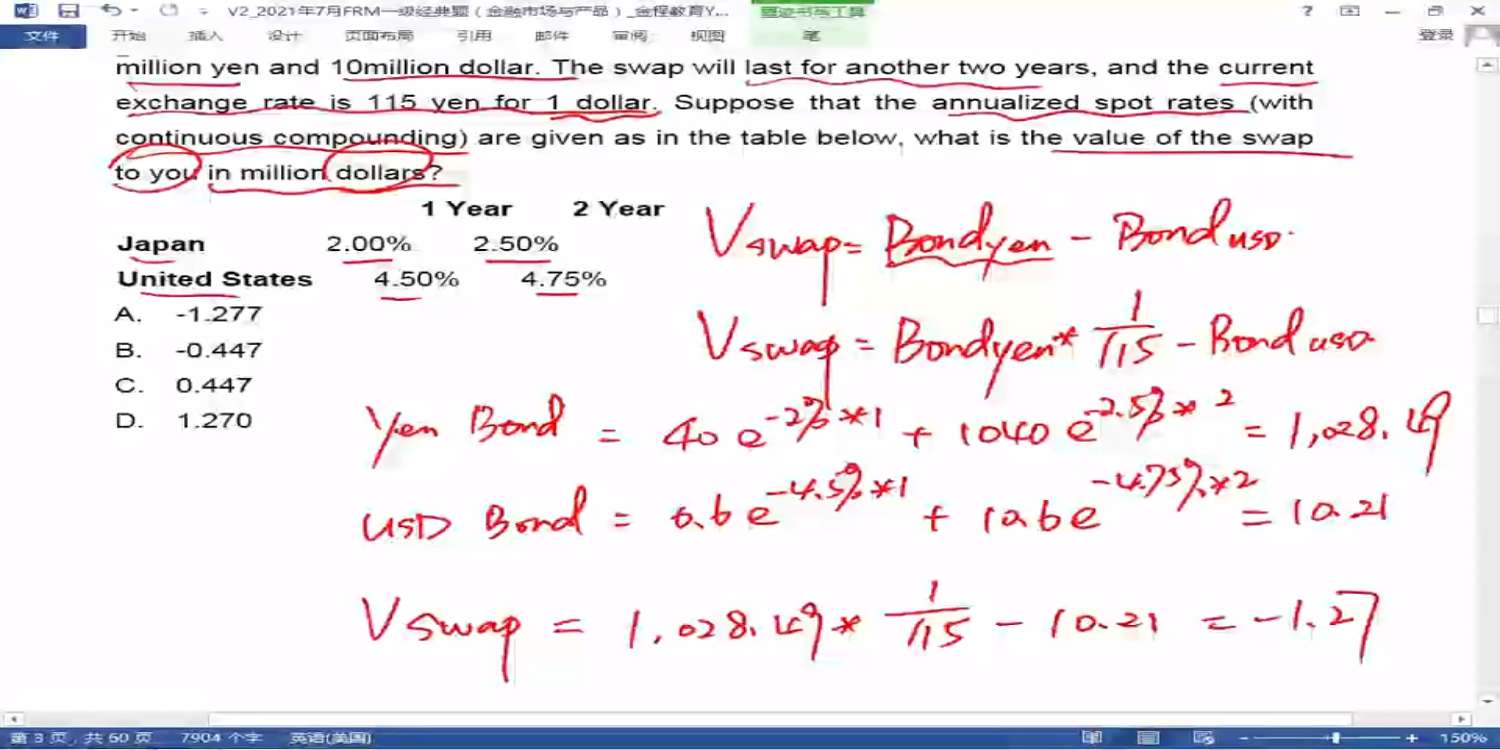 V2_2021年7月FRM一级经典题（金融市场与产品）_金程教育Y... 墨迹书写工具
文件 开始 插入 设计 页面布局 引用 邮件 审阅 视图 笔 登录
million yen and 10million dollar. The swap will last for another two years, and the current
exchange rate is 115 yen for 1 dollar. Suppose that the annualized spot rates (with
continuous compounding) are given as in the table below, what is the value of the swap
to you in million dollars?
1 Year 2 Year
Japan 2.00% 2.50%
United States 4.50% 4.75%
A. -1.277
B. -0.447
C. 0.447
D. 1.270
Vswap = Bondyen - Bond USD.
Vswap = Bondyen * 1/115 - Bond USD
Yen Bond = 40 e^-2%*1 + 1040 e^-2.5%*2 = 1,028.49
USD Bond = 0.6 e^-4.5%*1 + 10.6 e^-4.75%*2 = 10.21
Vswap = 1,028.49 * 1/115 - 10.21 = -1.27
第 3 页，共 60 页 7904 个字 英语(美国) 150%